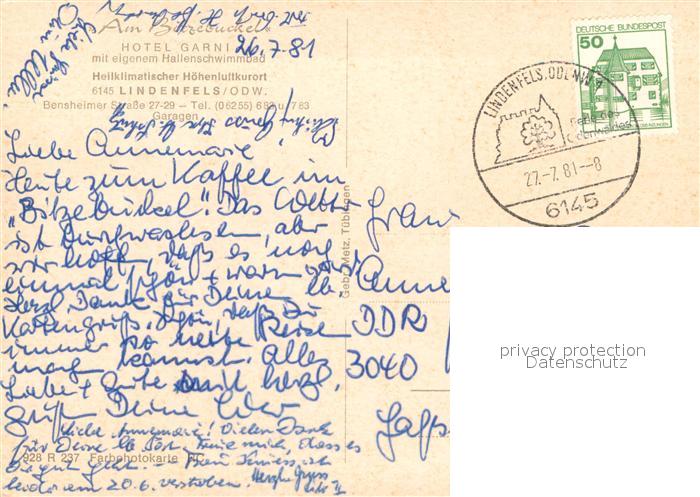 "Am Bitzebuckel"
HOTEL GARNI
26.7.81
mit eigenem Hallenschwimmbad
Heilklimatischer Höhenluftkurort
6145 LINDENFELS/ODW.
Bensheimer Straße 27-29 – Tel. (06255) 682 u. 783
Garagen
Liebe Annemarie
Heute zum Kaffee im
"Bitzebuckel". Das Wetter
ist durchwachsen, aber
wir hoffen, daß es noch
einmal schön + warm
Herzl. Dank für Deine
Kartengrüße. Schön, daß Du
immer so nette Reise
machen kannst. Alles
Liebe + Gute und herzl.
Grüße Deine
Liebe Annemarie! Vielen Dank
für Deine lb. Freue mich, dass es
Dir gut geht. –
leider am 20.6. verstorben. Herzliche Grüsse
928 R 237 Farbphotokarte
Gebr. Metz, Tübingen
DEUTSCHE BUNDESPOST
50
LINDENFELS, ODENW
Perle des
Odenwaldes
27.-7. 81.--8
6145
Frau
Anne
DDR
3040
privacy protection
Datenschutz